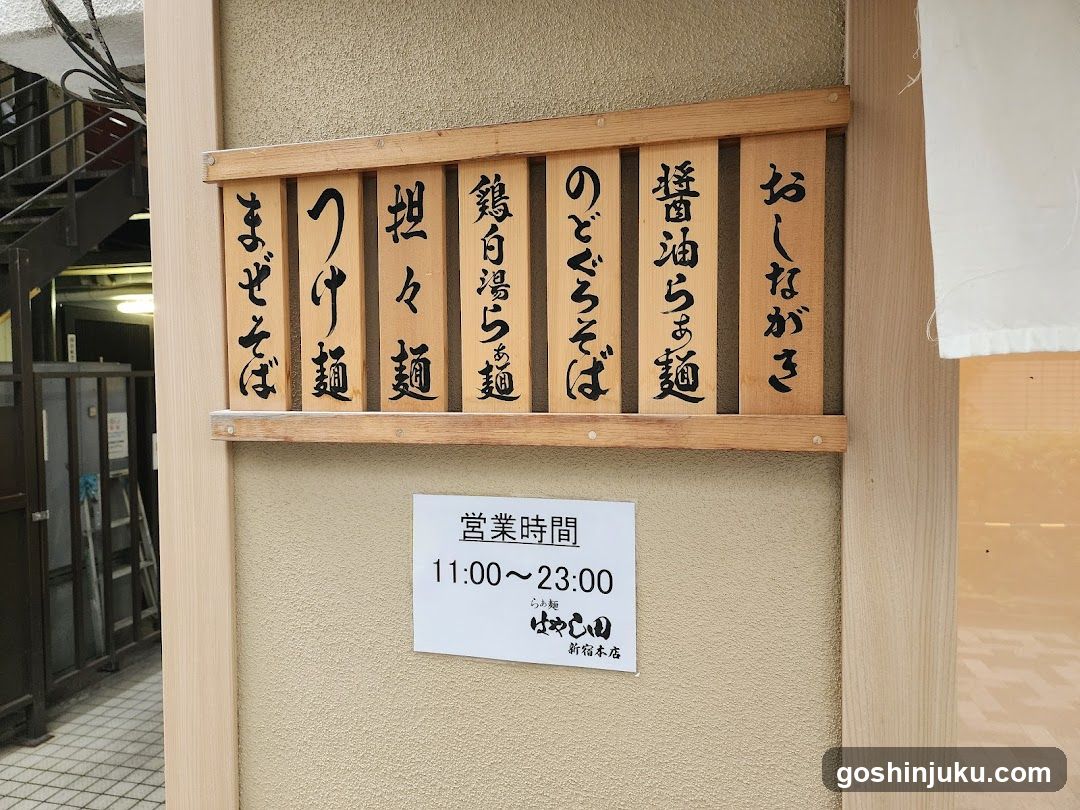 おしながき
醤油らぁ麺
のどぐろそば
鶏白湯らぁ麺
担々麺
つけ麺
まぜそば
営業時間
11:00〜23:00
らぁ麺
はやし田
新宿本店
goshinjuku.com